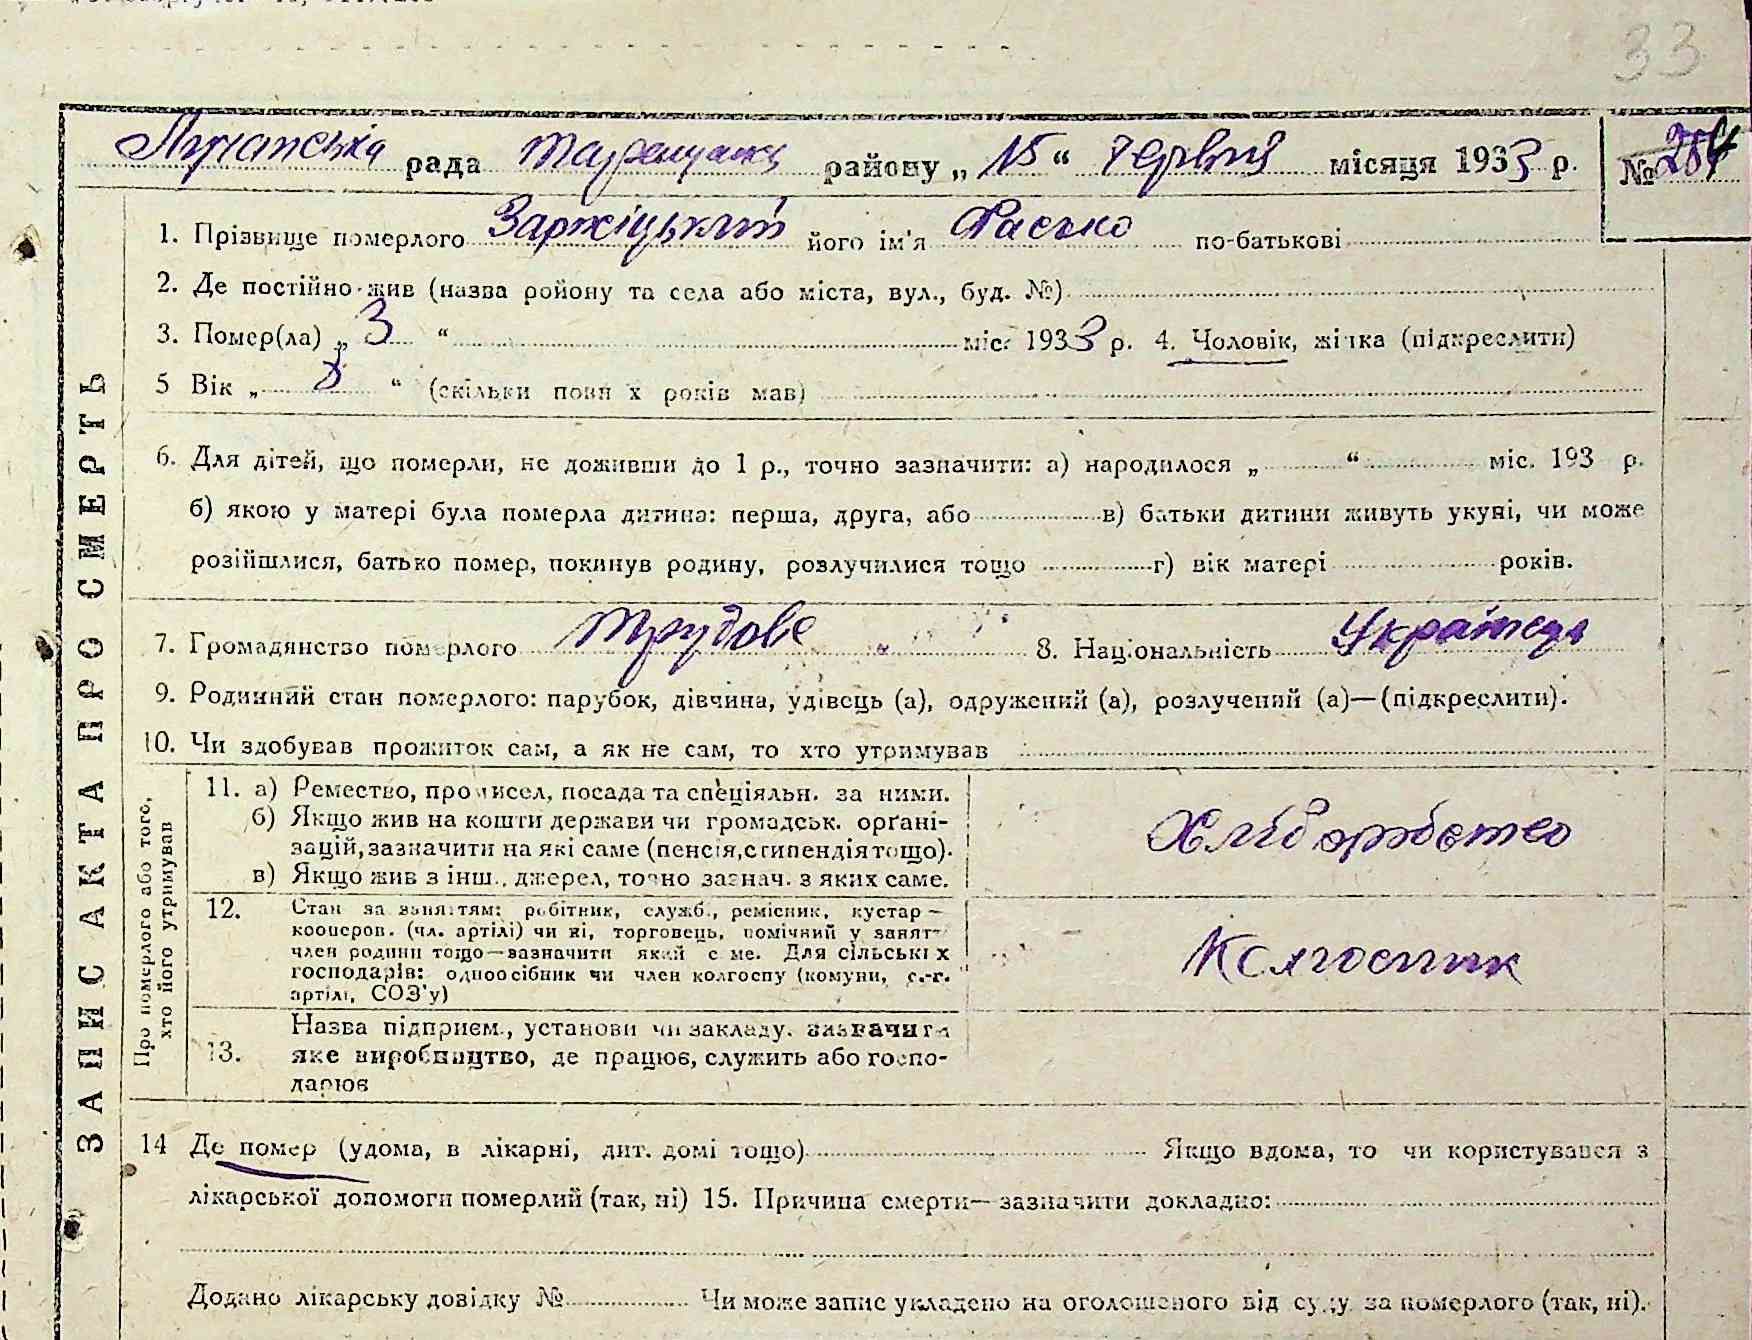 33
Лучанська рада Таращанск району „ 15 “ червня місяця 1933 р. № 284
1. Прізвище померлого його ім'я по-батькові
2. Де постійно жив (назва ройону та села або міста, вул., буд. №)
3. Помер(ла) „ 3 “ міс. 1933 р. 4. Чоловік, жінка (підкреслити)
5 Вік „ 3 “ (скільки повн х років мав)
6. Для дітей, що померли, не доживши до 1 р., точно зазначити: а) народилося „ “ міс. 193 р.
б) якою у матері була померла дитина: перша, друга, або в) батьки дитини живуть укупі, чи може
розійшлися, батько помер, покинув родину, розлучилися тощо г) вік матері років.
7. Громадянство померлого Трудове 8. Національність Українець
9. Родинний стан померлого: парубок, дівчина, удівець (а), одружений (а), розлучений (а)—(підкреслити).
10. Чи здобував прожиток сам, а як не сам, то хто утримував
ЗАПИС АКТА ПРО СМЕРТЬ
Про померлого або того,
хто його утримував
11. а) Ремество, промисел, посада та спеціяльн. за ними.
б) Якщо жив на кошти держави чи громадськ. орґані-
зацій, зазначити на які саме (пенсія, стипендія тощо).
в) Якщо жив з інш. джерел, точно зазнач. з яких саме.
Хліборобство
12. Стан за заняттям: робітник, служб., ремісник, кустар —
кооперов. (чл. артілі) чи ні, торговець, помічний у занят-
член родини тощо—зазначити який с ме. Для сільськіх
господарів: одноосібник чи член колгоспу (комуни, с.-г.
артілі, СОЗ'у)
Колгоспник
13. Назва підприєм., установи чи закладу. зазначити
яке виробництво, де працює, служить або госпо-
дарює
14 Де помер (удома, в лікарні, дит. домі тощо) Якщо вдома, то чи користувався з
лікарської допомоги померлий (так, ні) 15. Причина смерти— зазначити докладно:
Додано лікарську довідку № Чи може запис укладено на оголошеного від суду за померлого (так, ні).